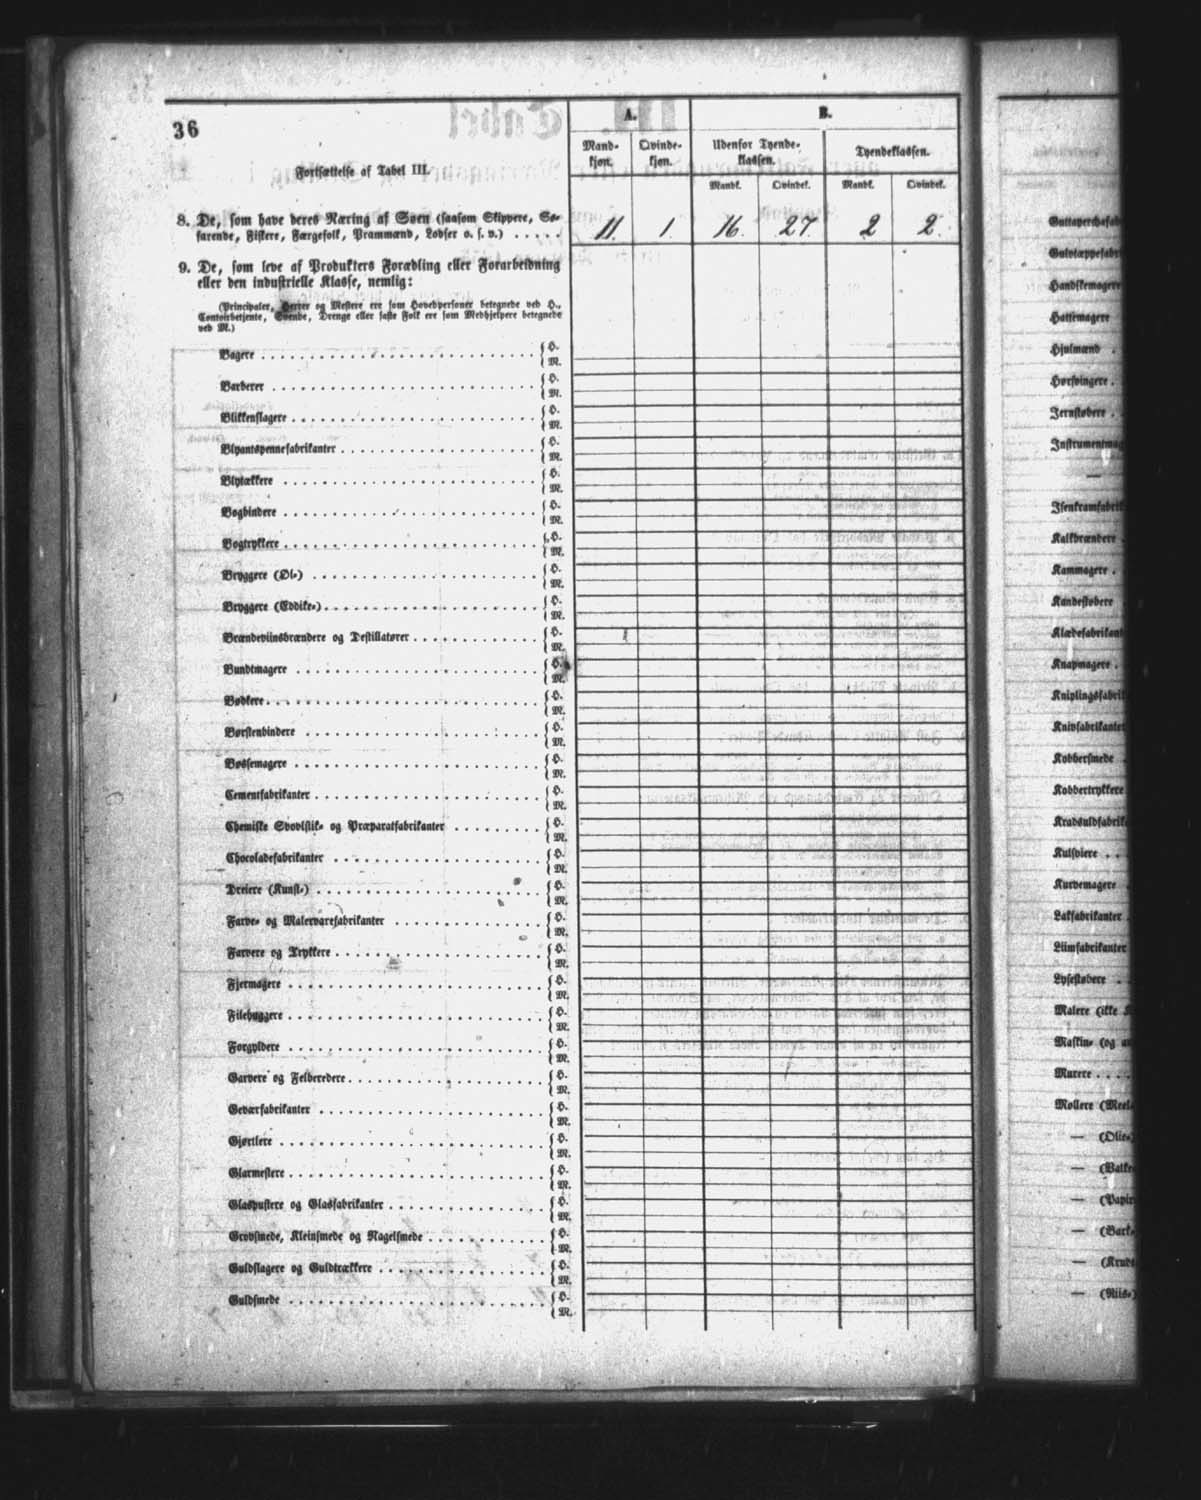 36
Fortsættelse af Tabel III.
A.
B.
Mand-
kjøn.
Qvinde-
kjøn.
Udenfor Tyende-
klassen.
Tyendeklassen.
Mandk.
Qvindek.
Mandk.
Qvindek.
8. De, som have deres Næring af Søen (saasom Skippere, Sø-
farende, Fiskere, Færgefolk, Prammænd, Lodser o. s. v.) . . . . . 11. 1. 16. 27. 2 2.
9. De, som leve af Produkters Forædling eller Forarbeidning
eller den industrielle Klasse, nemlig:
(Principaler, Herrer og Mestere ere som Hovedpersoner betegnede ved H.,
Contoirbetjente, Svende, Drenge eller faste Folk ere som Medhjelpere betegnede
ved M.)
Bagere { H.
M.
Barberer { H.
M.
Blikkenslagere { H.
M.
Blyantspennefabrikanter { H.
M.
Blytækkere { H.
M.
Bogbindere { H.
M.
Bogtrykkere { H.
M.
Bryggere (Øl-) { H.
M.
Bryggere (Eddike-) { H.
M.
Brændeviinsbrændere og Destillatører { H.
M.
Bundtmagere { H.
M.
Bødkere { H.
M.
Børstenbindere { H.
M.
Bøssemagere { H.
M.
Cementfabrikanter { H.
M.
Chemiske Svovlstik- og Præparatfabrikanter { H.
M.
Chocoladefabrikanter { H.
M.
Dreiere (Kunst-) { H.
M.
Farve- og Malervarefabrikanter { H.
M.
Farvere og Trykkere { H.
M.
Fjermagere { H.
M.
Filehuggere { H.
M.
Forgyldere { H.
M.
Garvere og Felberedere { H.
M.
Geværfabrikanter { H.
M.
Gjørtlere { H.
M.
Glarmestere { H.
M.
Glaspustere og Glasfabrikanter { H.
M.
Grovsmede, Kleinsmede og Nagelsmede { H.
M.
Guldslagere og Guldtrækkere { H.
M.
Guldsmede { H.
M.
Guttaperchafab
Gulvtæppefabri
Handskemagere
Hattemagere
Hjulmænd .
Hørsvingere .
Jernstøbere .
Instrumentmag
—
Isenkramfabrik
Kalkbrændere .
Kammagere .
Kandestøbere
Klædefabrikant
Knapmagere .
Kniplingsfabrik
Knivfabrikanter
Kobbersmede .
Kobbertrykkere
Kradsuldfabrik
Kulsviere . .
Kurvemagere .
Lakfabrikanter .
Liimfabrikanter
Lysestøbere . .
Malere (ikke K
Maskin- (og an
Murere . . . .
Møllere (Meel-
— (Olie-)
— (Valke-
— (Papir
— (Bark-
— (Krudt
— (Riis-)